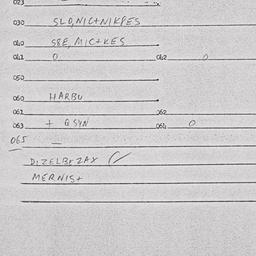 023
030 SLO,NIC+NIKPES
040 SBE, MIC+KES
041 0 042 0
050
060 HARBU
061 062
063 + GSYN 064 0
065 —
DIZELBEZAX
MERNIS+